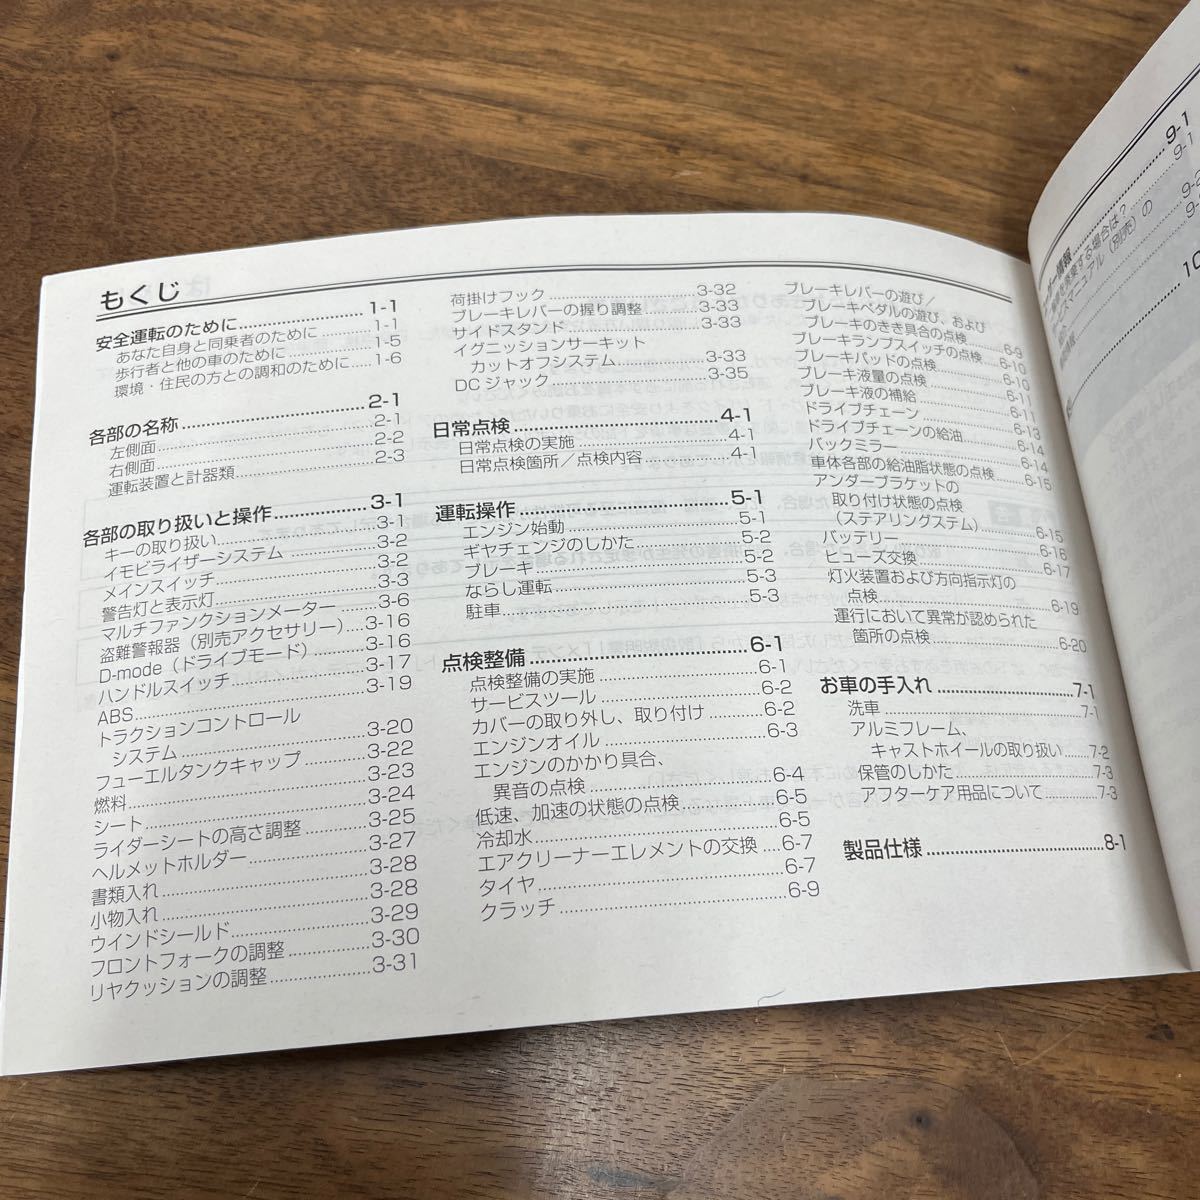 もくじ
安全運転のために 1-1
あなた自身と同乗者のために 1-1
歩行者と他の車のために 1-5
環境・住民の方との調和のために 1-6
各部の名称 2-1
左側面 2-1
右側面 2-2
運転装置と計器類 2-3
各部の取り扱いと操作 3-1
キーの取り扱い 3-1
イモビライザーシステム 3-2
メインスイッチ 3-2
警告灯と表示灯 3-3
マルチファンクションメーター 3-6
盗難警報器（別売アクセサリー） 3-16
D-mode（ドライブモード） 3-16
ハンドルスイッチ 3-17
ABS 3-19
トラクションコントロール
システム 3-20
フューエルタンクキャップ 3-22
燃料 3-23
シート 3-24
ライダーシートの高さ調整 3-25
ヘルメットホルダー 3-27
書類入れ 3-28
小物入れ 3-28
ウインドシールド 3-29
フロントフォークの調整 3-30
リヤクッションの調整 3-31
荷掛けフック 3-32
ブレーキレバーの握り調整 3-33
サイドスタンド 3-33
イグニッションサーキット
カットオフシステム 3-33
DCジャック 3-35
日常点検 4-1
日常点検の実施 4-1
日常点検箇所／点検内容 4-1
運転操作 5-1
エンジン始動 5-1
ギヤチェンジのしかた 5-2
ブレーキ 5-2
ならし運転 5-3
駐車 5-3
点検整備 6-1
点検整備の実施 6-1
サービスツール 6-2
カバーの取り外し、取り付け 6-2
エンジンオイル 6-3
エンジンのかかり具合、
異音の点検 6-4
低速、加速の状態の点検 6-5
冷却水 6-5
エアクリーナーエレメントの交換 6-7
タイヤ 6-7
クラッチ 6-9
ブレーキレバーの遊び／
ブレーキペダルの遊び、および
ブレーキのきき具合の点検 6-9
ブレーキランプスイッチの点検 6-10
ブレーキパッドの点検 6-10
ブレーキ液量の点検 6-11
ブレーキ液の補給 6-11
ドライブチェーン 6-13
ドライブチェーンの給油 6-14
バックミラー 6-14
車体各部の給油脂状態の点検 6-15
アンダーブラケットの
取り付け状態の点検
（ステアリングステム） 6-15
バッテリー 6-16
ヒューズ交換 6-17
灯火装置および方向指示灯の
点検 6-19
運行において異常が認められた
箇所の点検 6-20
お車の手入れ 7-1
洗車 7-1
アルミフレーム、
キャストホイールの取り扱い 7-2
保管のしかた 7-3
アフターケア用品について 7-3
製品仕様 8-1
情報 9-1
する場合は？ 9-1
マニュアル（別売）の